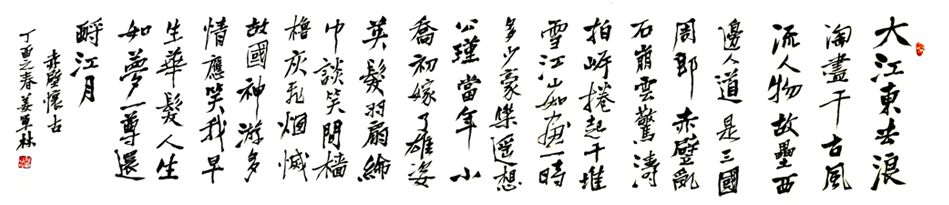 大江東去浪
淘盡千古風
流人物故壘西
邊人道是三國
周郎赤壁亂
石崩雲驚濤
拍岸捲起千堆
雪江山如画一時
多少豪傑遥想
公瑾當年小
喬初嫁了雄姿
英髮羽扇綸
巾談笑間檣
櫓灰飛烟滅
故國神游多
情應笑我早
生華髮人生
如夢一尊還
酹江月
赤壁懷古
丁酉之春姜軍林